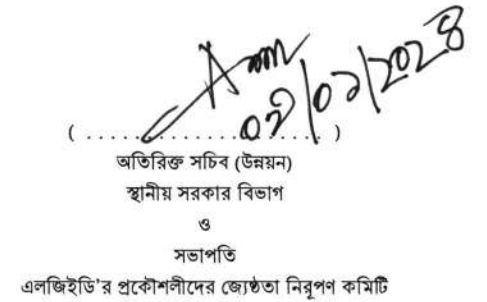 ( . . . . . . . . . . . . . . . . . . . . . . )
অতিরিক্ত সচিব (উন্নয়ন)
স্থানীয় সরকার বিভাগ
ও
সভাপতি
এলজিইডি'র প্রকৌশলীদের জ্যেষ্ঠতা নিরূপণ কমিটি